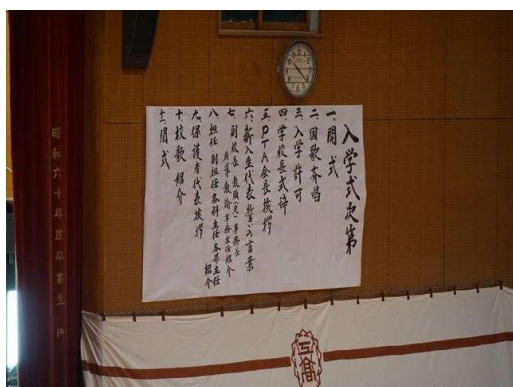 入学式次第
一、開式
二、国歌斉唱
三、入学許可
四、学校長式辞
五、PTA会長挨拶
六、新入生代表誓いの言葉
七、副校長 教頭(定)事務長
主任紹介
八、担任 副担任 各科主任 各部主任
紹介
九、保護者代表挨拶
十、校歌紹介
十一、閉式
昭和六十年度卒業生
工高